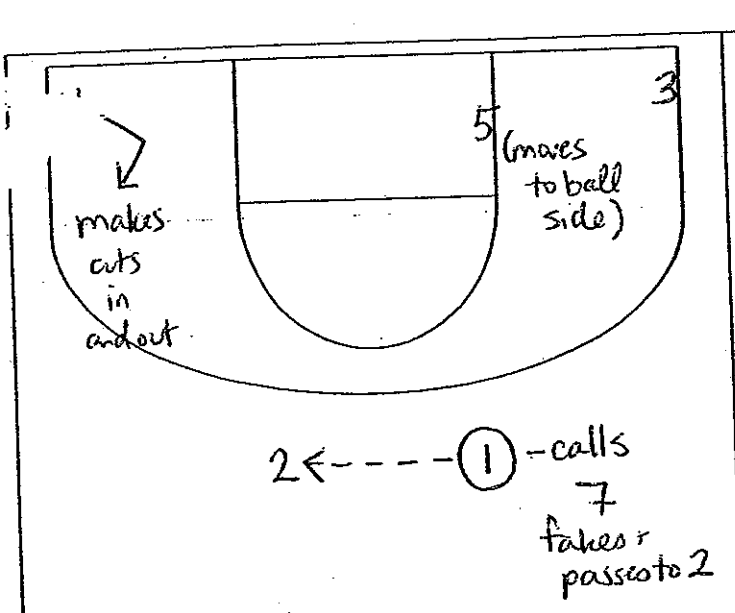 3
5
(moves
to ball
side)
makes
cuts
in
and out
2 1 - calls
7
fakes +
passes to 2